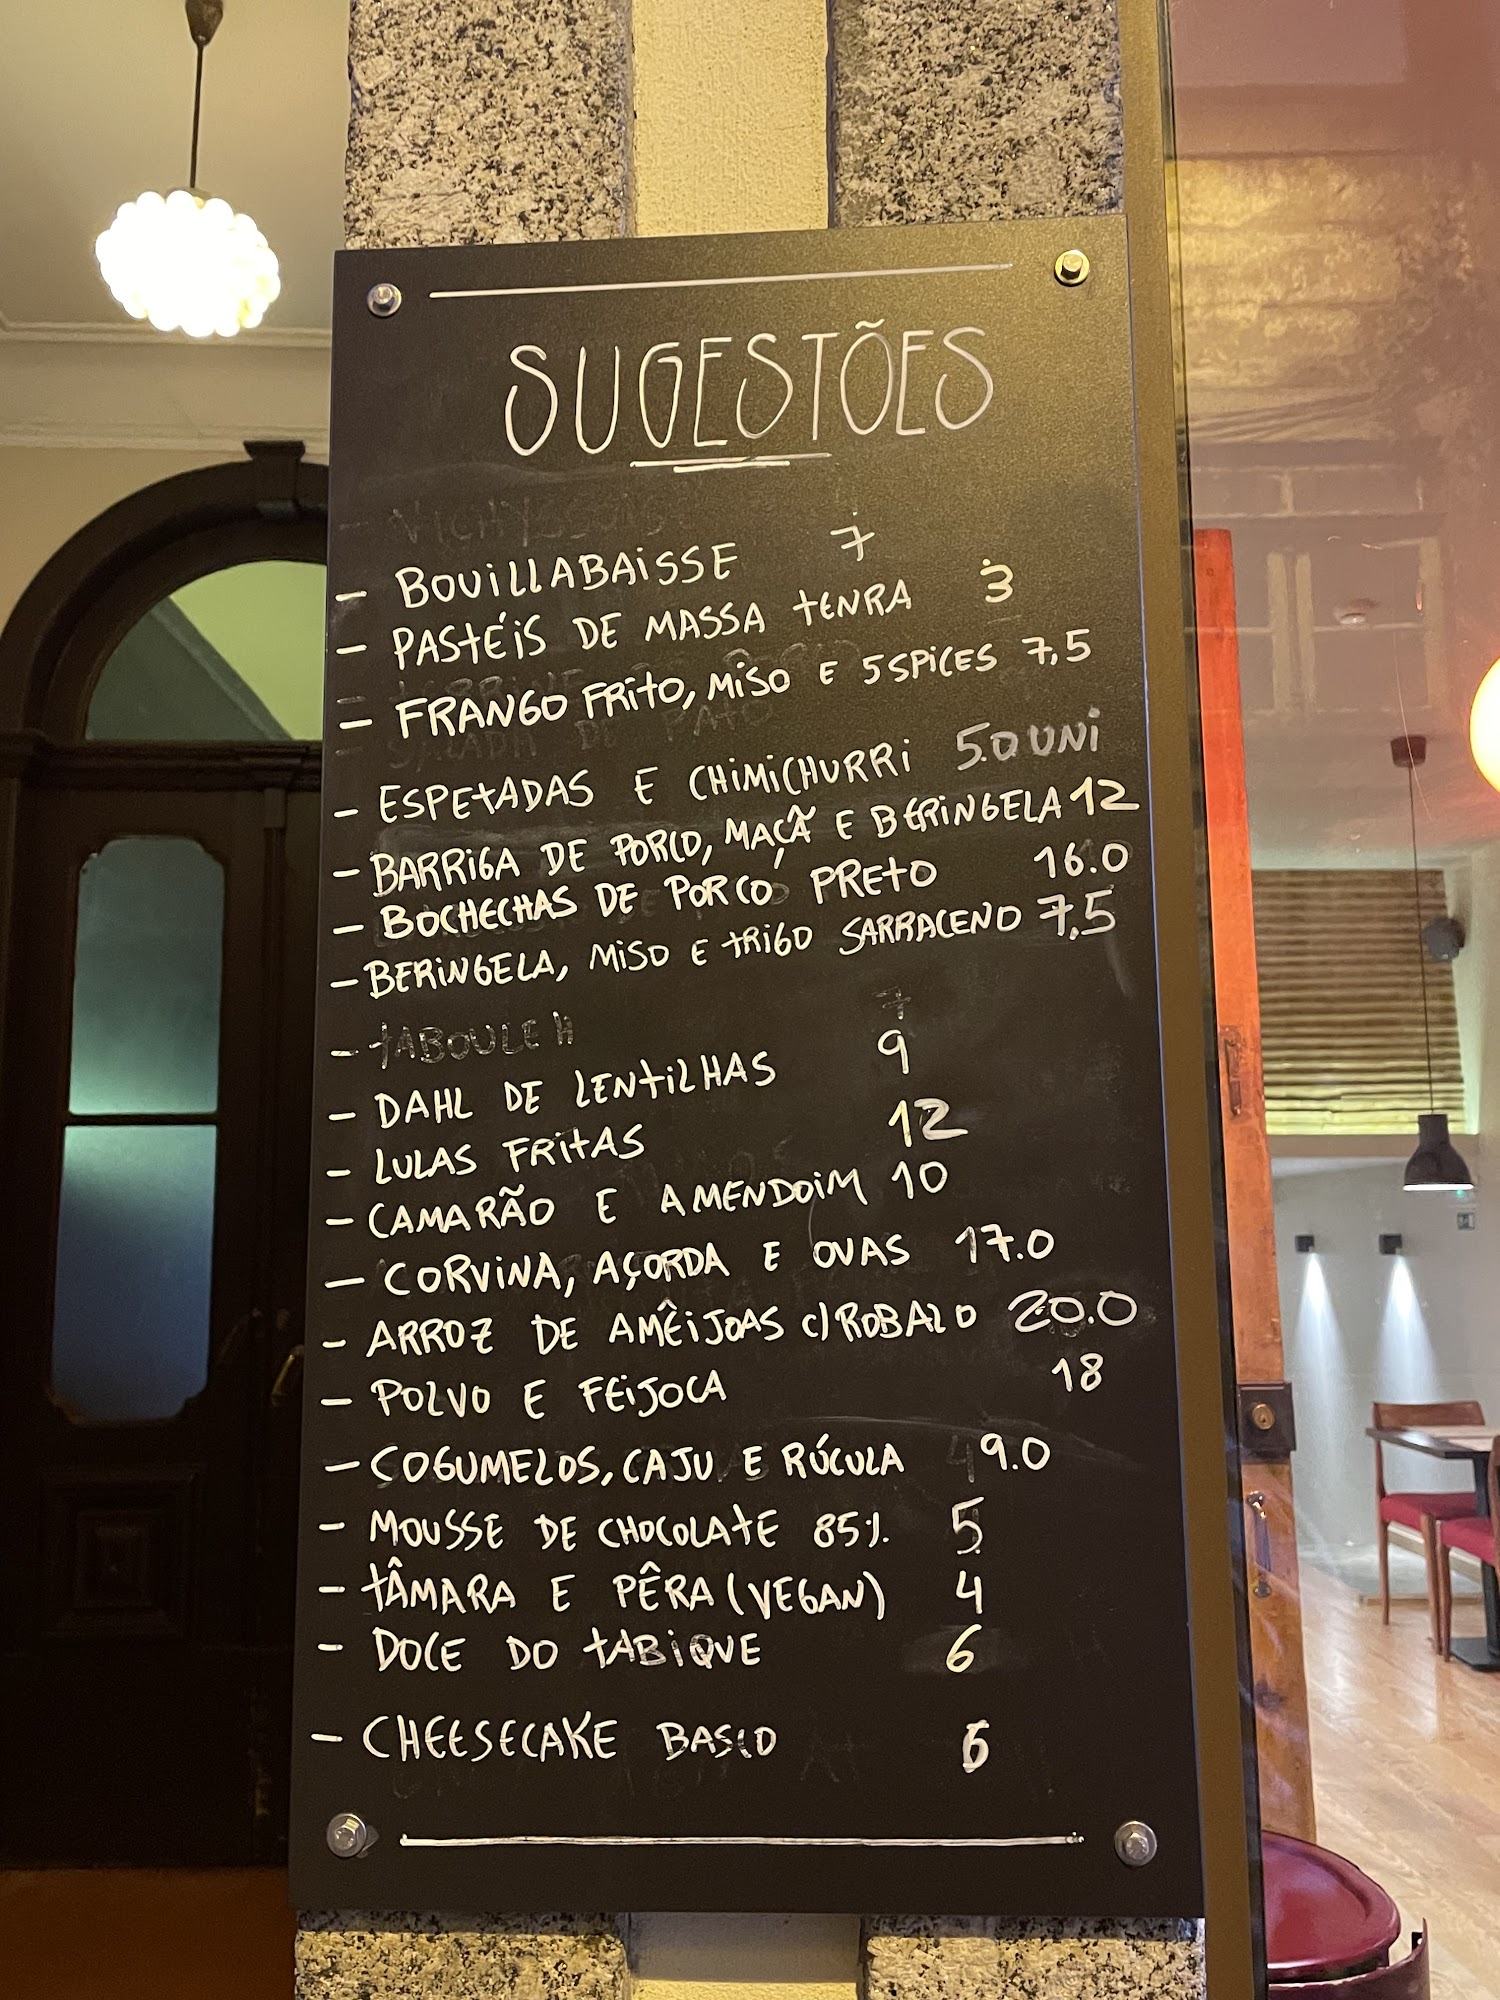 SUGESTÕES
- VICHYSSOISE
- BOUILLABAISSE 7
- PASTÉIS DE MASSA TENRA 3
- FRANGO FRITO, MISO E 5 SPICES 7,5
- ESPETADAS E CHIMICHURRI 5.0 UNI
- BARRIGA DE PORCO, MAÇÃ E BERINGELA 12
- BOCHECHAS DE PORCO PRETO 16.0
- BERINGELA, MISO E TRIGO SARRACENO 7,5
- TABOULEH 7
- DAHL DE LENTILHAS 9
- LULAS FRITAS 12
- CAMARÃO E AMENDOIM 10
- CORVINA, AÇORDA E OVAS 17.0
- ARROZ DE AMÊIJOAS C/ROBALO 20.0
- POLVO E FEIJOCA 18
- COGUMELOS, CAJU E RÚCULA 9.0
- MOUSSE DE CHOCOLATE 85%. 5
- TÂMARA E PÊRA (VEGAN) 4
- DOCE DO TABIQUE 6
- CHEESECAKE BASCO 6